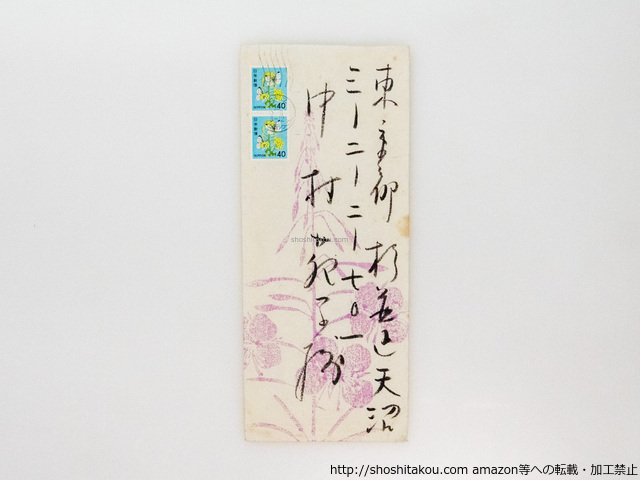 東京都 杉並区天沼
三ー二ー二ー七〇一
中村苑子様
日本郵便
NIPPON
40
日本郵便
NIPPON
40
shoshitakou.com
http://shoshitakou.com amazon等への転載・加工禁止